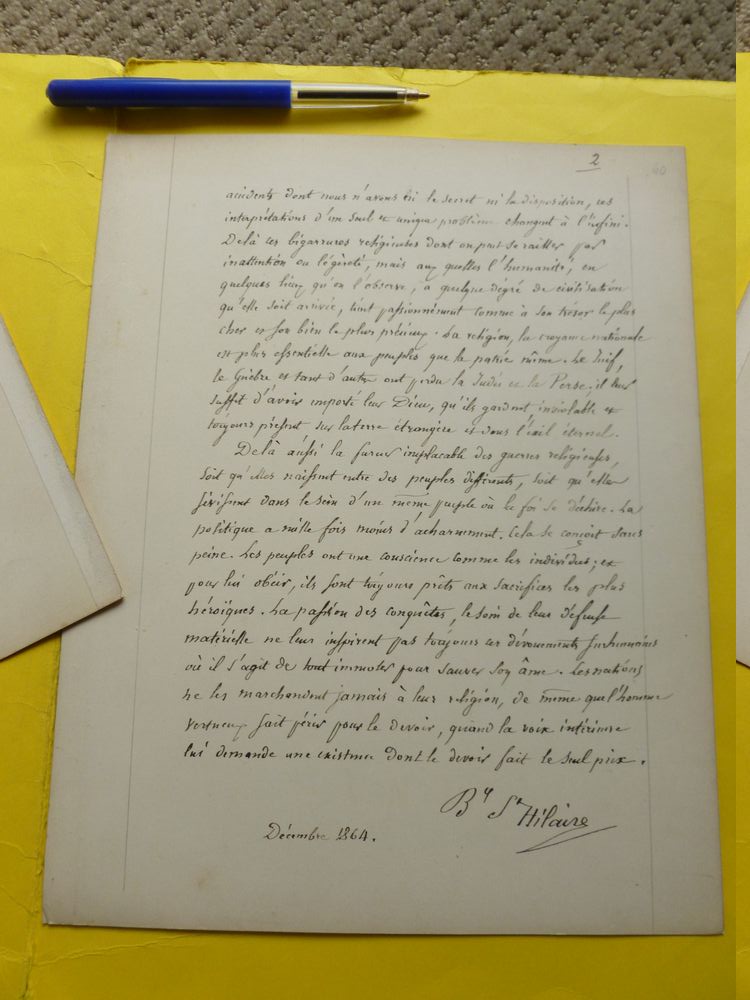 2
accidents dont nous n'avons ni le secret ni la disposition, ces
interprétations d'un seul et unique problème changent à l'infini.
Delà ces bigarrures religieuses dont on peut se railler par
inattention ou légèreté, mais aux quelles l'humanité, en
quelques lieux qu'on l'observe, à quelque degré de civilisation
qu'elle soit arrivée, tient passionnément comme à son trésor le plus
cher et son bien le plus précieux. La religion, la croyance nationale
est plus essentielle aux peuples que la patrie même. Le Juif,
le Guèbre et tant d'autres ont perdu la Judée et la Perse; il leur
suffit d'avoir emporté leur Dieu, qu'ils gardent inviolable et
toujours présent sur la terre étrangère et dans l'exil éternel.
Delà aussi la fureur implacable des guerres religieuses,
soit qu'elles naissent entre des peuples différents, soit qu'elles
sévissent dans le sein d'un même peuple où la foi se déchire. La
politique a mille fois moins d'acharnement. Cela se conçoit sans
peine. Les peuples ont une conscience comme les individus; et
pour lui obéir, ils sont toujours prêts aux sacrifices les plus
héroïques. La passion des conquêtes, le soin de leur défense
matérielle ne leur inspirent pas toujours ces dévouements surhumains
où il s'agit de tout immoler pour sauver son âme. Les nations
ne les marchandent jamais à leur religion, de même que l'homme
vertueux sait périr pour le devoir, quand la voix intérieure
lui demande une existence dont le devoir fait le seul prix.
By St Hilaire
Décembre 1864.